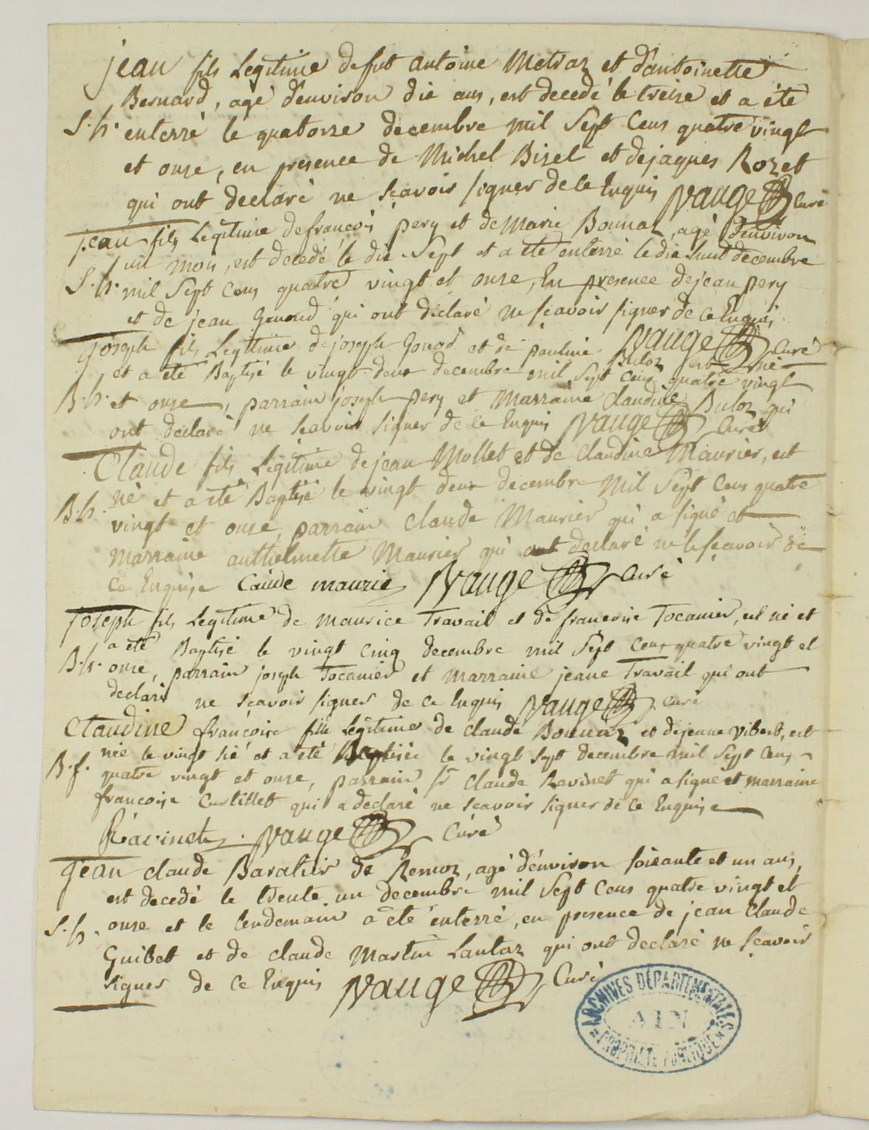 jean fils Legitime de fut antoine Metraz et d'antoinette
Bernard, agé d'environ dix ans, est decedé le treize et a été
S. h. enterré le quatorze decembre mil Sept Cens quatre vingt
et onze, en presence de Michel Bizel et de jaques Rozet
qui ont declaré ne Scavoir Signer de ce Enquis Nvauge Curé
jean fils Legitime de françois pery et de Marie Bonnaz, agé d'environ
un mois, est decedé le dix Sept et a été enterré le dix huit decembre
S. h. mil Sept Cens quatre vingt et onze, En presence de jean pery
et de jean Gonod qui ont declaré ne Scavoir Signer de ce Enquis
Nvauge Curé
joseph fils Legitime de joseph Gonod et de pauline Buloz est né
et a été Baptisé le vingt deux decembre mil Sept Cens quatre vingt
B. h. et onze, parrain joseph pery et Marraine Claudine Buloz qui
ont declaré ne Scavoir Signer de ce Enquis Nvauge Curé
Claude fils Legitime de jean Mollet et de Claudine Maurier, est
né et a été Baptisé le vingt deux decembre Mil Sept Cens quatre
B. h. vingt et onze, parrain Claude Maurier qui a Signé et
Marraine anthelmette Maurier qui a declaré ne le Scavoir de
Ce Enquise Caude maurie Nvauge Curé
joseph fils Legitime de Maurice Travail et de françoise Tocanier, est né et
a été Baptisé le vingt Cinq decembre mil Sept Cens quatre vingt et
B. h. onze, parrain joseph Tocanier et Marraine jeane Travail qui ont
declaré ne Scavoir Signer de ce Enquis Nvauge Curé
Claudine françoise fille Legitime de Claude Bonnaz et de jeane Vibert, est
née le vingt Six et a été Baptisée le vingt Sept decembre mil Sept Cens
B. f. quatre vingt et onze, parrain Sr Claude Ravinet qui a Signé et marraine
françoise Curtillet qui a declaré ne Scavoir Signer de ce Enquise
Ravinet Nvauge Curé
jean Claude Baratier de Remoz, agé d'environ Soixante et un ans,
est decedé le trente un decembre mil Sept Cens quatre vingt et
S. h. onze et le lendemain a été enterré, en presence de jean Claude
Guibet et de Claude Martin Lantaz qui ont declaré ne Scavoir
Signer de ce Enquis Nvauge Curé
ARCHIVES DÉPARTEMENTALES
AIN
PROPRIÉTÉ PUBLIQUE